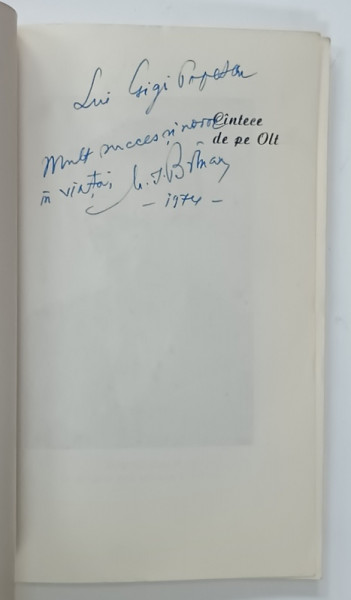 Lui Gigi Popescu
Cîntece
de pe Olt
Mult succes și noroc
în viață,
- 1974 -